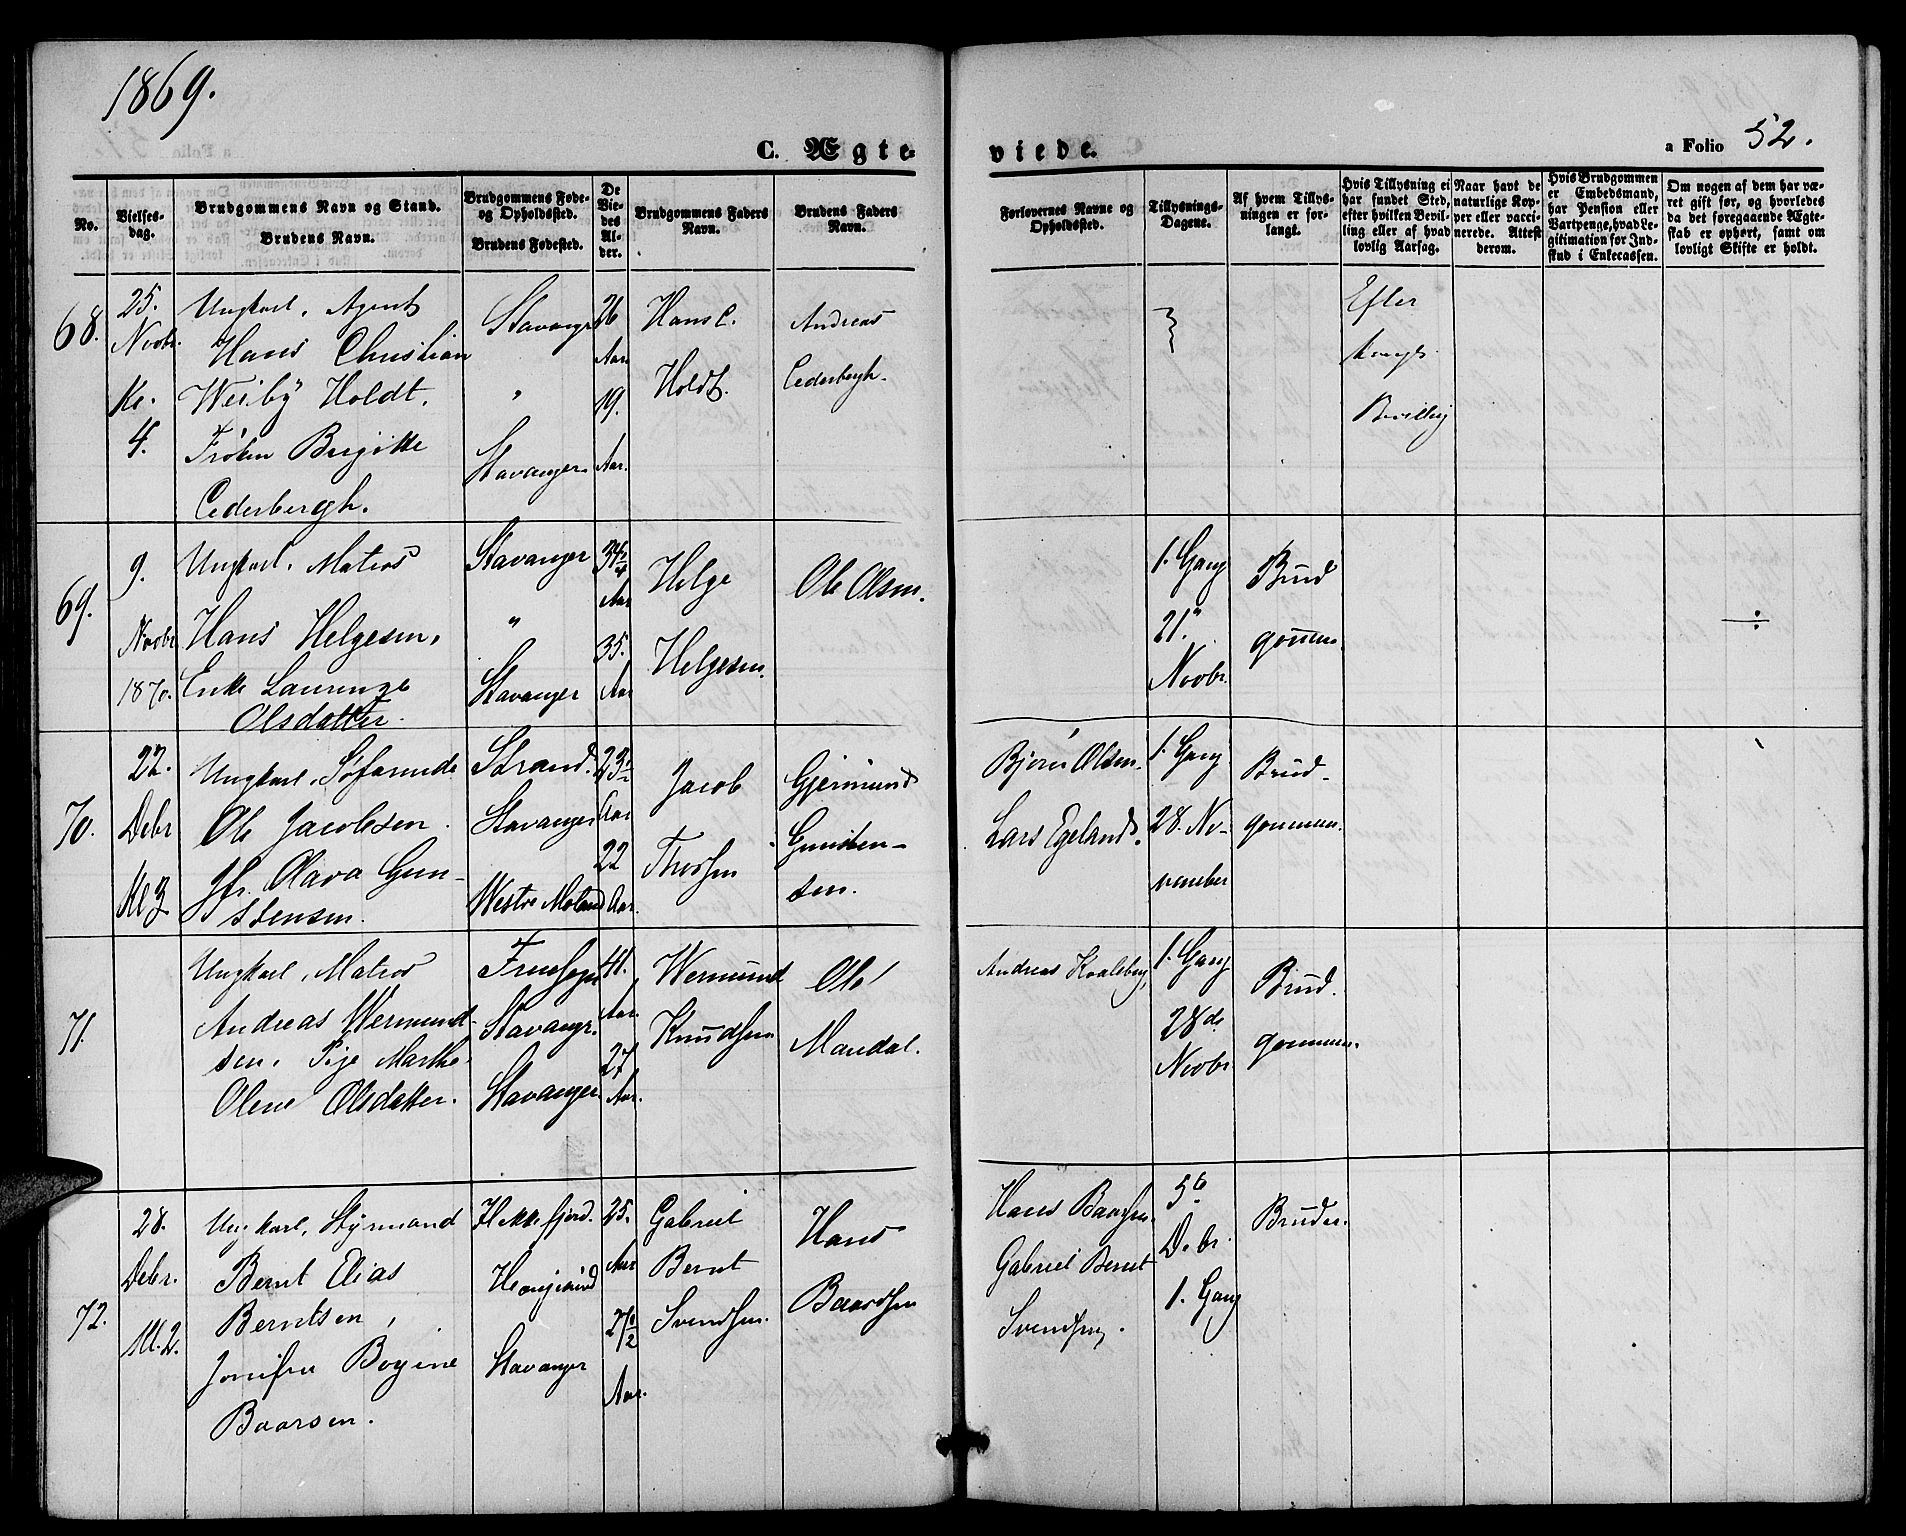 1869.
C. Ægte
viede.
a Folio 52.
No.
Vielses-
dag.
Brudgommens Navn og Stand.
Brudens Navn.
Brudgommens Føde-
og Opholdssted.
Brudens Fødested.
De
Vie-
des
Al-
der.
Brudgommens Faders
Navn.
Brudens Faders
Navn.
Forlovernes Navne og
Opholdssted.
Tillysnings-
Dagene.
Af hvem Tillys-
ningen er for-
langt.
Hvis Tillysning ei
har fundet Sted,
efter hvilken Bevil-
ling eller af hvad
lovlig Aarsag.
Naar havt de
naturlige Kop-
per eller vacci-
nerede. Attest
derom.
Hvis Brudgommen
er Embedsmand,
har Pension eller
Vartpenge, hvad Le-
gitimation for Ind-
skud i Enkecassen.
Om nogen af dem har væ-
ret gift før, og hvorledes
da det foregaaende Ægte-
skab er ophørt, samt om
lovligt Skifte er holdt.
68.
25.
Novbr.
Kl.
4.
Ungkarl, Agent
Hans Christian
Weiby Holdt.
Frøken Birgitte
Cederbergh.
Stavanger
"
Stavanger
26
Aar
19.
Aar.
Hans C.
Holdt.
Andreas
Cederbergh.
Efter
kongl.
Bevillig
69.
9.
Novbr
1870.
Ungkarl, Matros
Hans Helgesen,
Enke Laurenze
Olsdatter.
Stavanger
"
Stavanger
34
Aar
35.
Aar
Helge
Helgesen.
Ole Olsen.
1. Gang
21.
Novbr.
Brud
gommen.
÷
70.
22.
Debr
Kl 3
Ungkarl, Søfarende
Ole Jacobsen.
Jfr. Olava Gun-
stensen.
Strand.
Stavanger
Westre Moland
23
Aar
22
Aar.
Jacob
Thorsen
Gjermund
Gunsten-
sen.
Bjørn Olsen.
Lars Egeland.
1. Gang
28. No-
vember
Brud-
gommen.
71.
Ungkarl, Matros
Andreas Wermund-
sen. Pige Marthe
Olene Olsdatter.
Stavangr.
Stavanger
41.
Aar.
27
Aar.
Wermund
Knudsen
Ole
Mandal.
Andreas Kvaleberg,
1. Gang
28de
Novbr
Brud.
gommen.
72.
28.
Debr.
Kl. 2.
Ungkarl, Styrmand
Bernt Elias
Berntsen,
Jomfru Bogine
Baarsen.
Hekkefjord.
Haugesund
Stavanger
25.
Aar
27 1/2
Aar.
Gabriel
Bernt
Svendsen.
Hans
Baardsen
Hans Baarsen.
Gabriel Bernt
Svendsen.
5te
Debr.
1. Gang
Bruden.